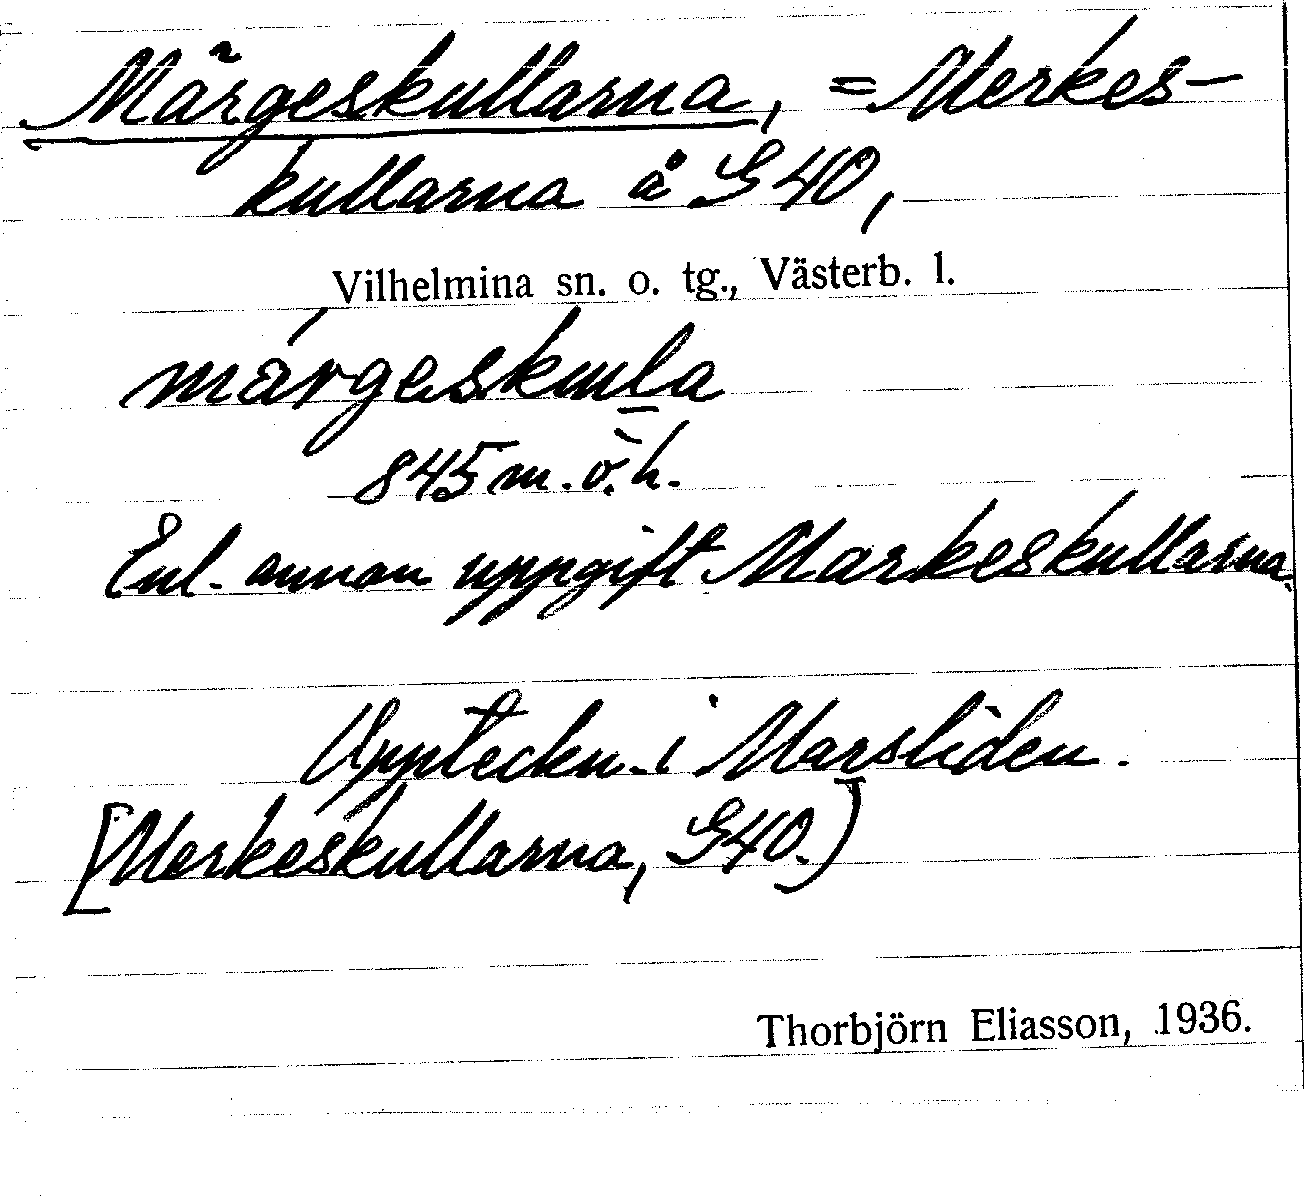 Märgeskullarna, = Merkes-
kullarna å G 40,
Vilhelmina sn. o. tg., Västerb. l.
márgeskula
845 m. ö. h.
Enl. annan uppgift Markeskullarna.
Uppteckn. i Marsliden.
[Merkeskullarna, G 40.]
Thorbjörn Eliasson, 1936.